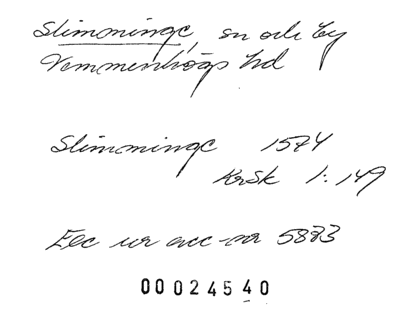 Slimminge, sn och by
Vemmenhögs hd
Slimminge 1574
KrSk 1:149
Exc ur acc-nr 5883
00024540